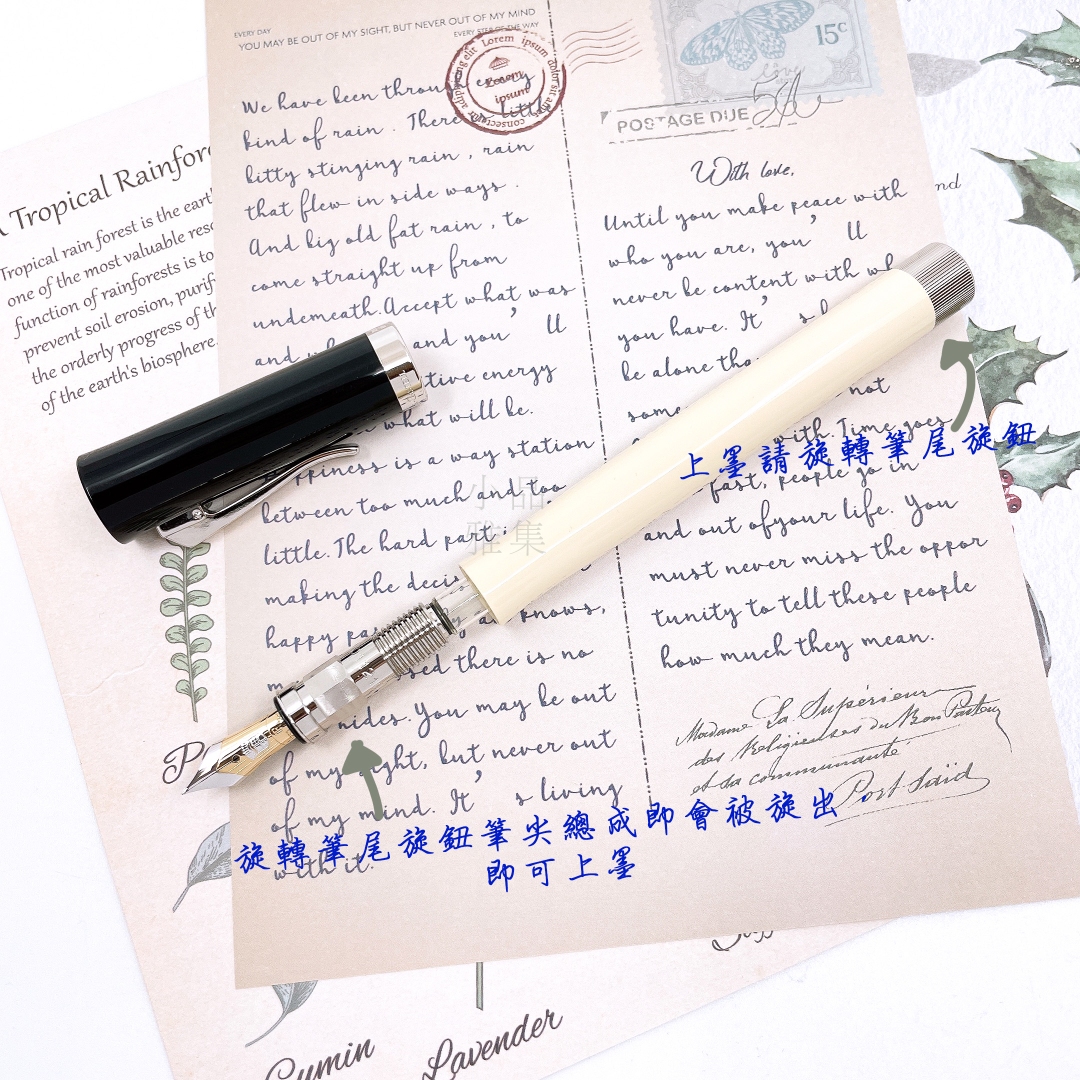 EVERY DAY
YOU MAY BE OUT OF MY SIGHT, BUT NEVER OUT OF MY MIND
EVERY STEP OF THE WAY
elit Lorem ipsum dolor sit amet consectetur adipiscing
Lorem
ipsum
15c
love
POSTAGE DUE
We have been through every
kind of rain . There little
bitty stinging rain , rain
that flew in side ways .
And big old fat rain , to
come straight up from
underneath. Accept what was
and and you’ ll
tive energy
what will be.
ppiness is a way station
between too much and too
little. The hard part i
making the deci
happy pa knows,
sed there is no
nides. You may be out
of my sight, but never out
of my mind. It’ s living
with it.
With love,
Until you make peace with
who you are, you’ ll
never be content with wh
you have. It’ s b
be alone tha
some not
with. Time goes
fast, people go in
and out ofyour life. You
must never miss the oppor
tunity to tell these people
how much they mean.
Madame La Supérieure
des Religieuses du Bon Pasteur
et sa communauté
Port Saïd
A Tropical Rainfor
Tropical rain forest is the eart
one of the most valuable reso
function of rainforests is to
prevent soil erosion, purif
the orderly progress of th
of the earth's biosphere.
nd
上墨請旋轉筆尾旋鈕
小品
雅集
旋轉筆尾旋鈕筆尖總成即會被旋出
即可上墨
Cumin
Lavender